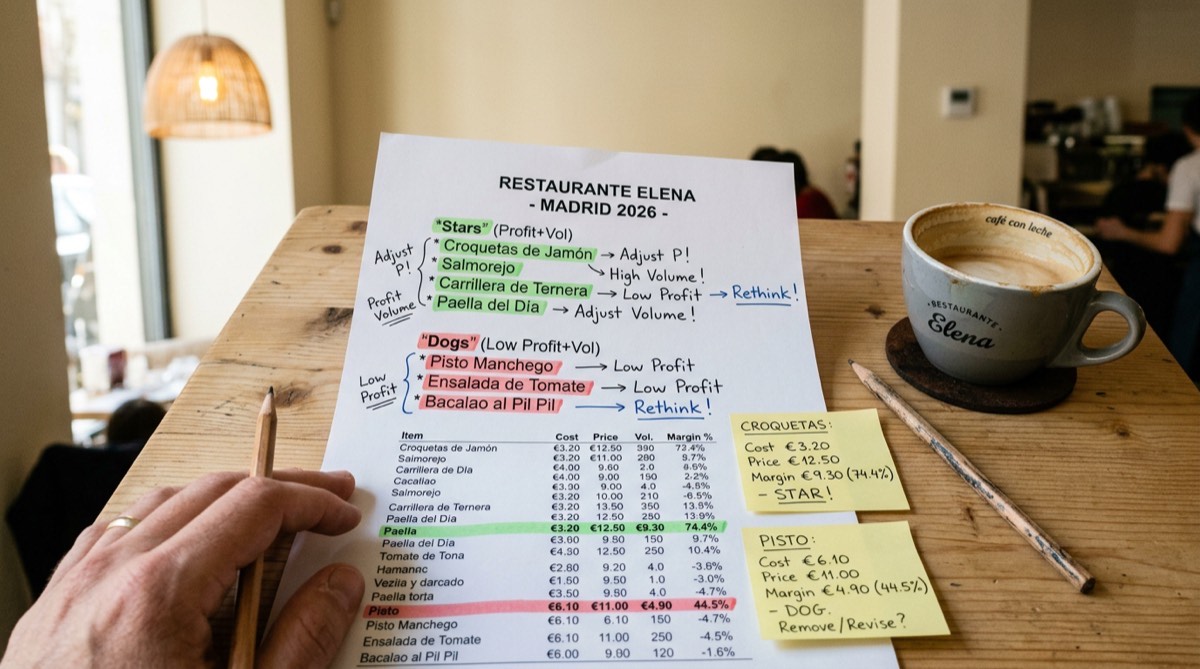 RESTAURANTE ELENA
- MADRID 2026 -
"Stars" (Profit+Vol)
Adjust P!
Profit Volume
* Croquetas de Jamón → Adjust P!
→ High Volume!
* Salmorejo
* Carrillera de Ternera → Low Profit → Rethink!
* Paella del Día → Adjust Volume!
"Dogs" (Low Profit+Vol)
Low Profit
* Pisto Manchego → Low Profit
* Ensalada de Tomate → Low Profit
* Bacalao al Pil Pil → Rethink!
Item Cost Price Vol. Margin %
Croquetas de Jamón €3.20 €12.50 390 73.4%
Salmorejo €3.20 €11.00 280 5.7%
Carrillera de Día €4.00 9.60 2.0 6.6%
Cacallao €4.00 9.00 150 2.2%
Salmorejo €3.00 9.00 4.0 -4.8%
€3.20 10.00 210 -6.5%
Carrillera de Ternera €3.20 13.50 350 13.8%
Paella del Día €3.20 12.50 250 13.9%
Paella €3.20 €12.50 €9.30 74.4%
Paella del Día €3.60 9.80 150 9.7%
Tomate de Tona €4.30 12.50 250 10.4%
Hamanac €2.80 9.20 4.0 -3.6%
Vezila y darcado €1.50 9.50 1.0 -3.0%
Paella torta €3.50 6.90 4.0 -4.7%
Pisto €6.10 €11.00 €4.90 44.5%
Pisto Manchego €6.10 6.10 150 -4.7%
Ensalada de Tomate €6.10 11.00 250 -4.5%
Bacalao al Pil Pil €6.00 9.80 120 -1.6%
CROQUETAS:
Cost €3.20
Price €12.50
Margin €9.30 (74.4%)
- STAR!
PISTO:
Cost €6.10
Price €11.00
Margin €4.90 (44.5%)
- DOG.
Remove/Revise?
café con leche
·RESTAURANTE·
Elena